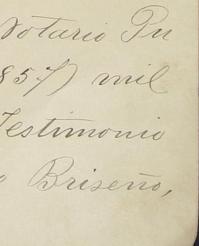 Notario Pu
857) mil
Testimonio
o Briseño,